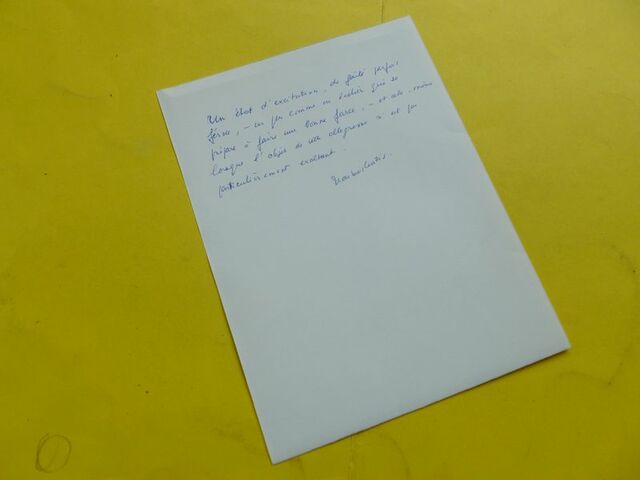 Un état d'excitation, de gaîté parfois
féroce, – un peu comme un écolier qui se
prépare à faire une bonne farce, – et cela même
lorsque l'objet de cette allégresse n'est pas
particulièrement exaltant.